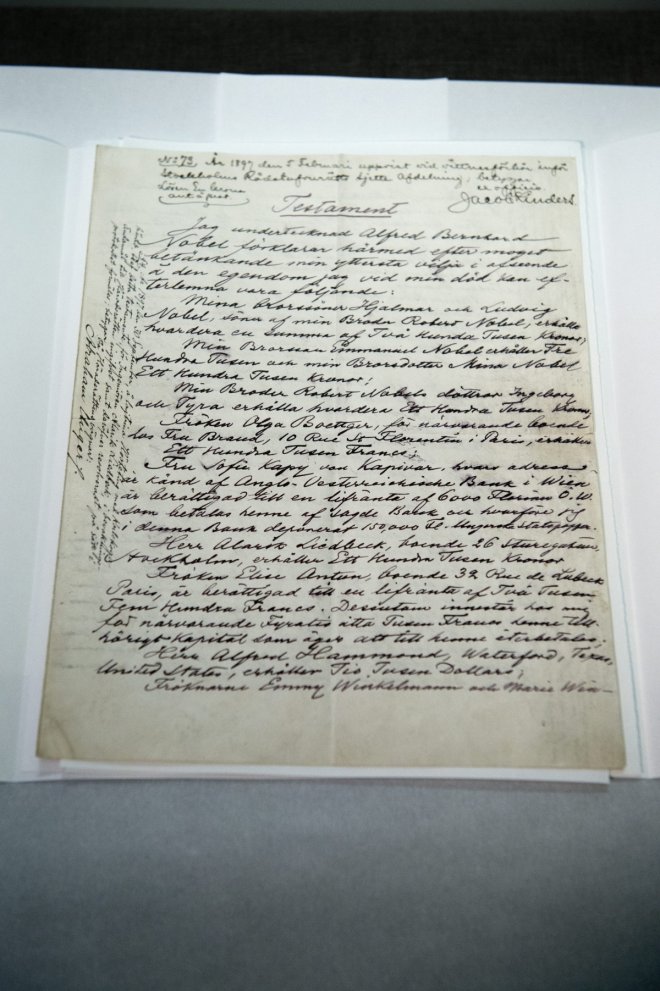 No 73. År 1897 den 5 Februari uppvist vid vittnesförhör inför
Stockholms Rådstufvurätts sjette Afdelning, betygar
Lösen En krona
ex officio
Jacob Linders.
Testament
Jag undertecknad Alfred Bernhard
Nobel förklarar härmed efter moget
betänkande min yttersta vilja i afseende
å den egendom jag vid min död kan ef-
terlemna vara följande:
Mina brorsöner Hjalmar och Ludvig
Nobel, söner af min Broder Robert Nobel, erhålla
hvardera en summa af Två Hundra Tusen Kronor;
Min Brorsson Emmanuel Nobel erhåller Tre
Hundra Tusen och min Brorsdotter Mina Nobel
Ett Hundra Tusen Kronor;
Min Broder Robert Nobels döttrar Ingeborg
och Tyra erhålla hvardera Ett Hundra Tusen Kronor;
Fröken Olga Boettger, för närvarande boende
hos Fru Brand, 10 Rue St Florentin i Paris, erhåller
Ett Hundra Tusen Francs;
Fru Sofie Kapy von Kapivar, hvars adress
är känd af Anglo-Oesterreichische Bank i Wien
är berättigad till en lifränta af 6000 Florins Ö.W.
som betalas henne af sagde Bank och hvarföre jag
i denna Bank deponerat 150,000 Fl. i Ungerska Statspapper;
Herr Alarik Liedbeck, boende 26 Sturegatan,
Stockholm, erhåller Ett Hundra Tusen Kronor
Fröken Elise Antun, boende 32 Rue de Lubeck
Paris, är berättigad till en lifränta af Två Tusen
Fem Hundra Francs. Desutom innestår hos mig
för närvarande Fyratio åtta Tusen Francs henne till-
hörigt Kapital som äger att till henne återbetalas;
Herr Alfred Hammond, Waterford, Texas,
United States, erhåller Tio Tusen Dollars;
Fröknarne Emmy Winkelmann och Marie Win-